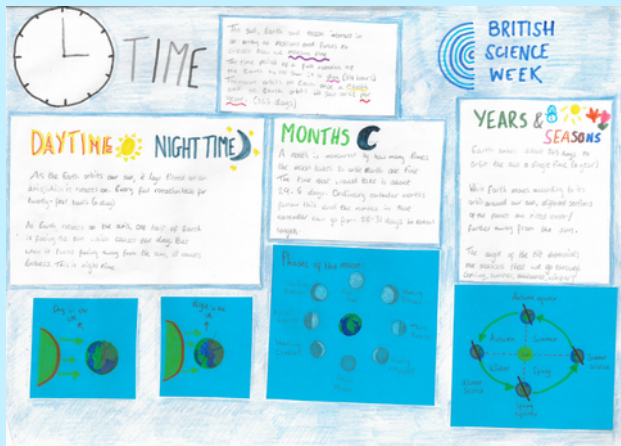 TIME
The sun, Earth and moon interact in
an array to and forces to
create how we measure time
The time period of a full rotation of
the Earth to the Sun is a day (24 hours)
The moon orbits the Earth once a month
and the Earth orbits the Sun once per
year. (365 days)
BRITISH
SCIENCE
WEEK
DAYTIME NIGHT TIME
As the Earth orbits our sun, it stays tilted on an
axis which it rotates on. Every full rotation lasts for
twenty-four hours (a day)
As Earth rotates on the axis, one half of Earth
is facing the sun which causes the day. But
when it faces facing away from the sun, it causes
darkness. This is night time.
MONTHS
A month is measured by how many times
the moon takes to orbit Earth one time
The time that would take is about
29.5 days. Ordinary calendar months
follow this and the months in that
calendar can go from 28-31 days to
YEARS &
SEASONS
Earth takes about 365 days to
orbit the sun a single time (a year)
While Earth moves according to its
orbit around our sun, different sections
of the planet are tilted over/
further away from the sun.
The angle of the tilt determines
the seasons that we go through
(spring, summer, autumn, winter)
Day in the
UK
Night in the
UK
Phases of the moon:
Full
Moon
New
Moon
Autumn equinox
Autumn
Summer
Sun
Winter
Spring
Summer
Solstice
Winter
Solstice
Spring
Equinox